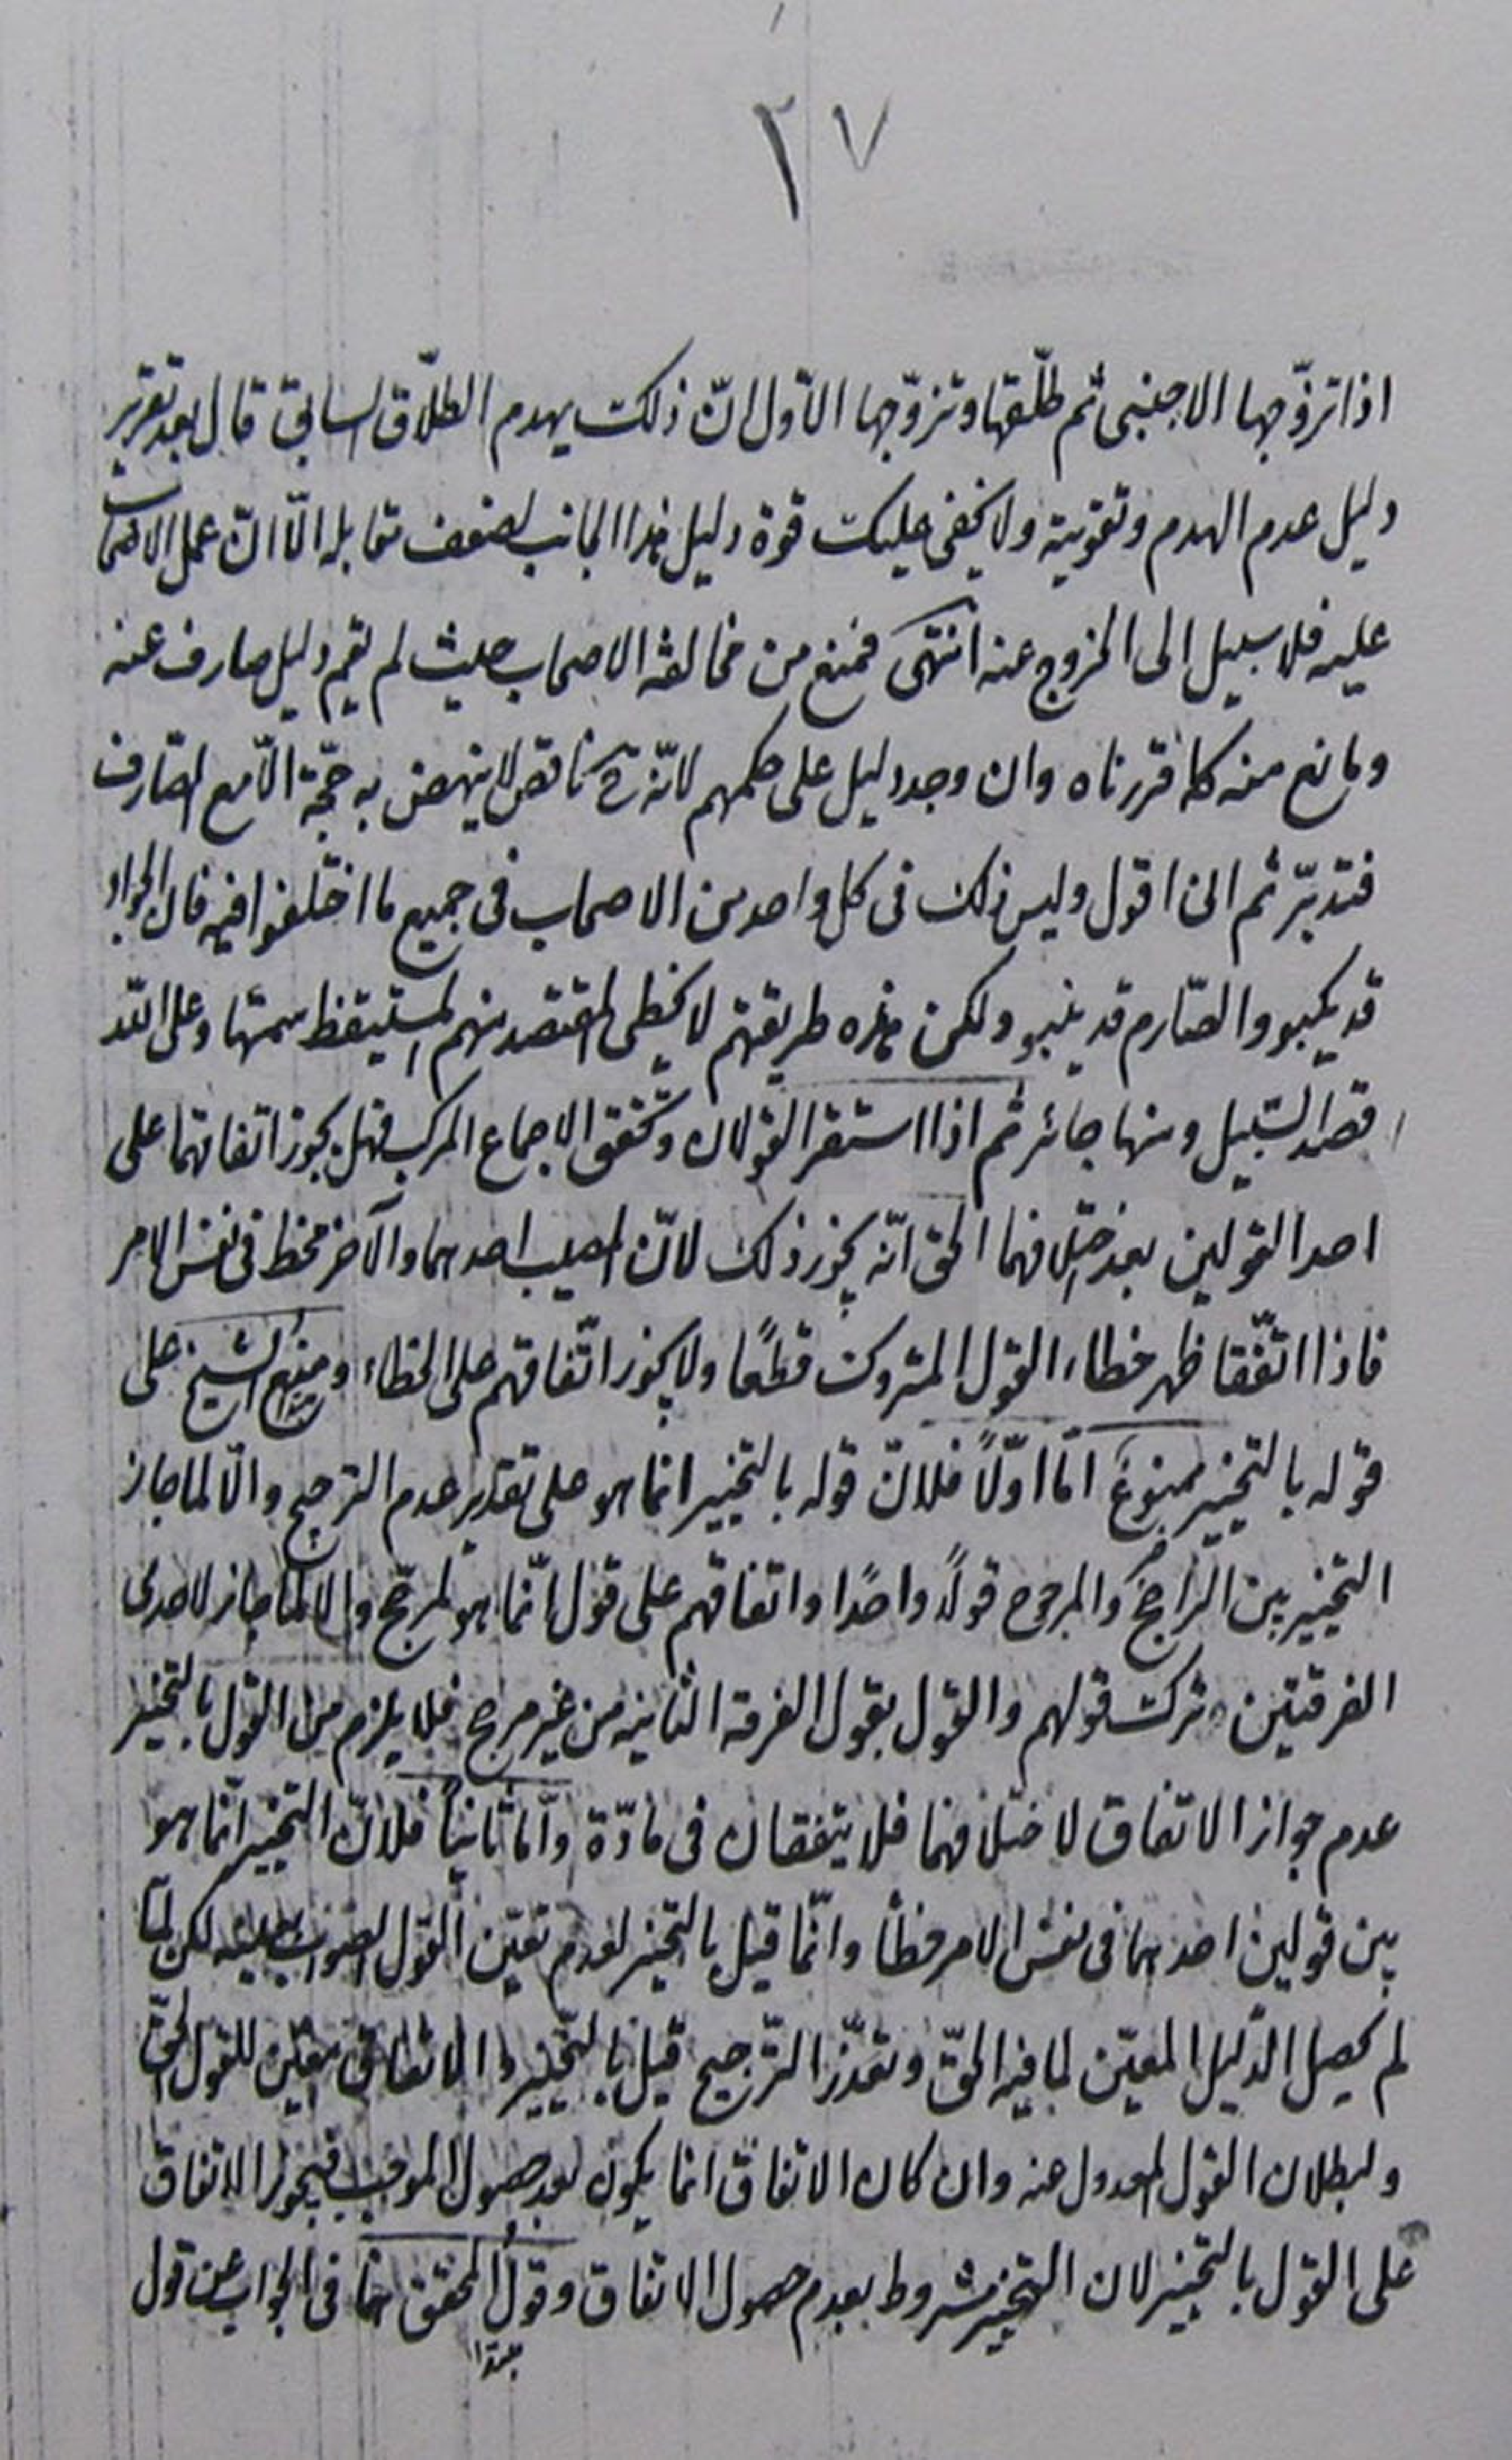 ٢٧
اذا تزوّجها الاجنبى ثم طلّقها و تزوّجها الاوّل انّ ذلك يهدم الطلاق السابق قال بعد تقرير
دليل عدم الهدم و تقويته ولا يخفى عليك قوة دليل هذا الجانب لضعف مقابله الّا انّ عمل الاصحاب
عليه فلا سبيل الى الخروج عنه انتهى فمنع من مخالفة الاصحاب حيث لم يقم دليل صارف عنه
ومانع منه كما قررناه وان وجد دليل على حكمهم لانّه ح ناقص لا ينهض به حجّة الّا مع الصّارف
فتدبّر ثم انى اقول وليس ذلك فى كل واحد من الاصحاب فى جميع ما اختلفوا فيه فان الجواد
قد يكبو والصّارم قد ينبو ولكن هذه طريقتهم لا يخطى المقتصد منهم المستيقظ سمتها وعلى اللّه
قصد السّبيل ومنها جائر ثم اذا استقر القولان وتحقق الاجماع المركب فهل يجوز اتفاقهما على
احد القولين بعد اختلافهما الحق انّه يجوز ذلك لانّ المصيب احدهما والآخر مخط فى نفس الامر
فاذا اتّفقا ظهر خطاء القول المتروك قطعًا ولا يجوز اتّفاقهم على الخطاء ومنع الشيخ على
قوله بالتخيير ممنوع امّا اوّلًا فلانّ قوله بالتخيير انما هو على تقدير عدم الترجيح والّا لما جاز
التخيير بين الرّاجح والمرجوح قولًا واحدًا واتفاقهم على قول انّما هو لمرجّح والّا لما جاز لاحدى
الفرقتين ترك قولهم والقول بقول الفرقة الثانيه من غير مرجح فلا يلزم من القول بالتخيير
عدم جواز الاتفاق لاختلافهما فلا يتفقان فى مادّة وامّا ثانيًا فلانّ التخيير انّما هو
بين قولين احدهما فى نفس الامر خطأ وانّما قيل بالتخيير لعدم تعيّن القول الصواب بعينه لكن لمّا
لم يحصل الدّليل المعيّن لما فيه الحقّ وتعذّر التّرجيح قيل بالتّخيير والاتفاق معيّن للقول الحقّ
ولبطلان القول المعدول عنه وان كان الاتفاق انما يكون بعد حصول الموجب فيجوز الاتفاق
على القول بالتخيير لان التخيير مشروط بعدم حصول الاتفاق وقول المحقق هنا فى الجواب عن قول